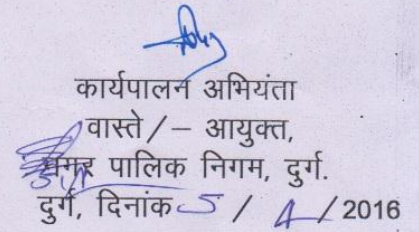 कार्यपालन अभियंता
वास्ते / – आयुक्त,
नगर पालिक निगम, दुर्ग.
दुर्ग, दिनांक 5 / 4 / 2016